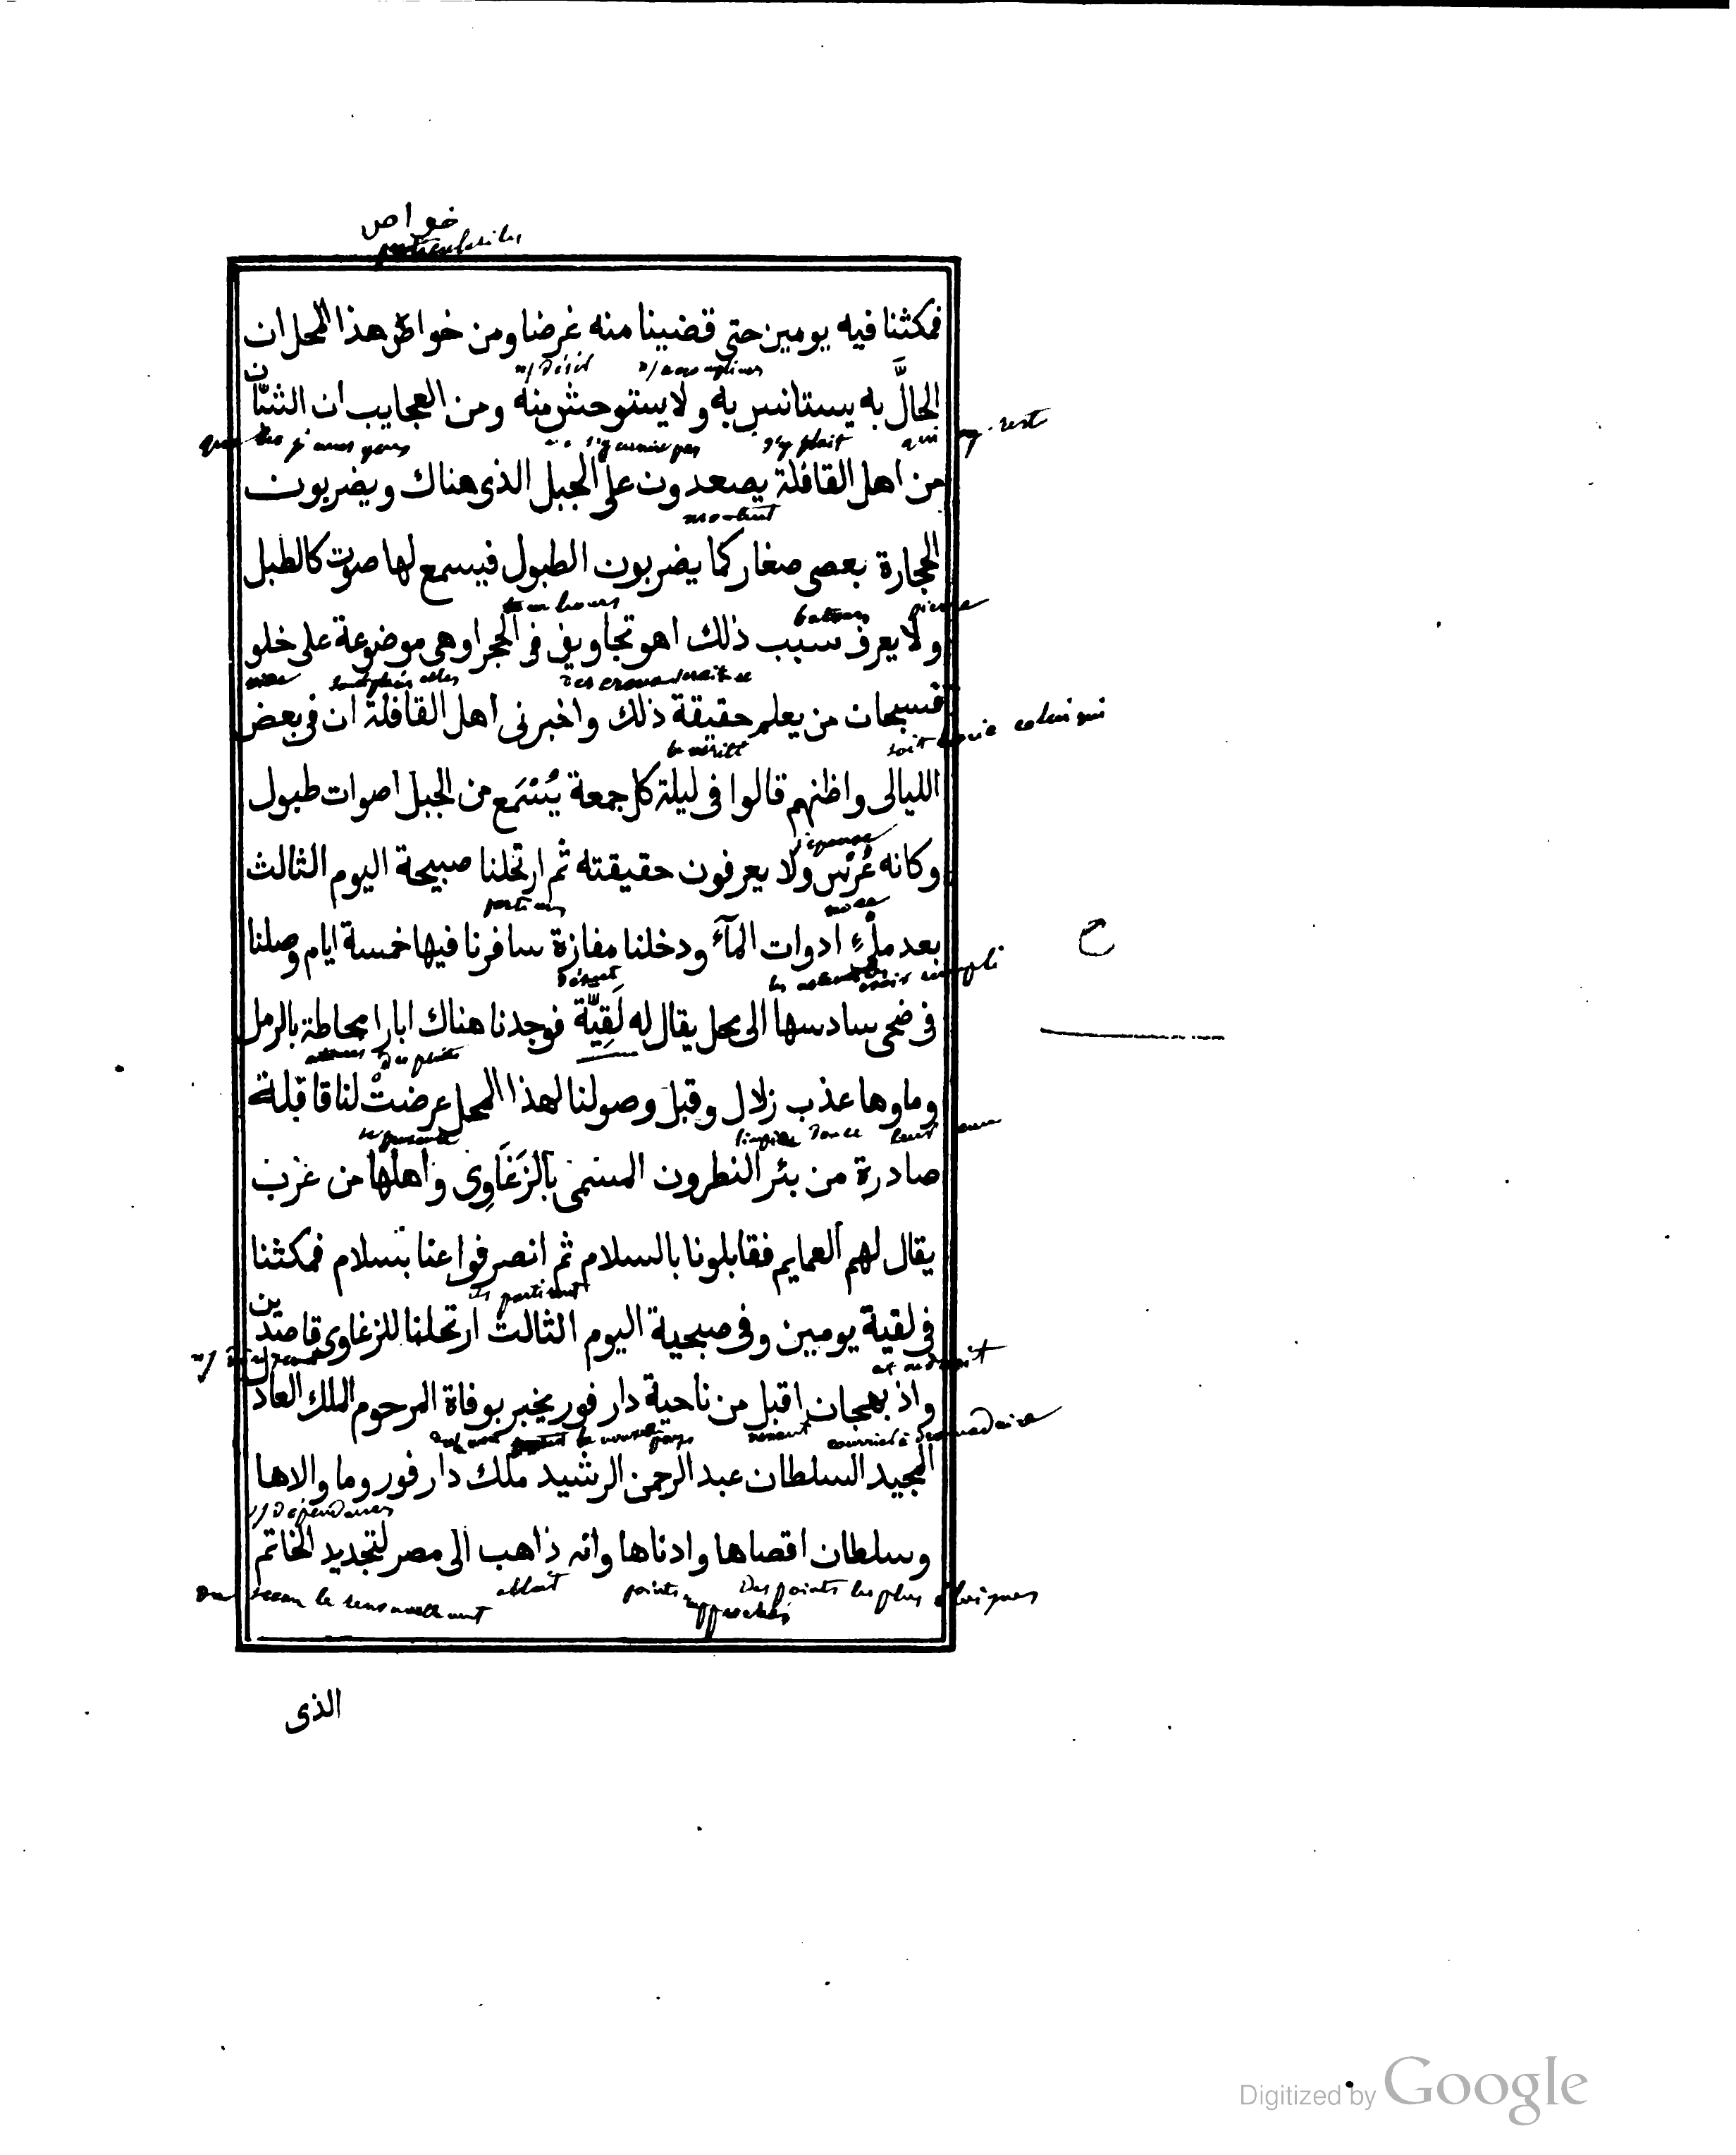 خواص
فمكثنا فيه يومين حتى قضينا منه غرضنا ومن خواص هذا المحل ان
الحالَّ به يستانس به ولا يستوحش منه ومن العجايب ان الشبّان
من اهل القافلة يصعدون على الجبل الذى هناك ويضربون
montent
الحجارة بعصى صغار كما يضربون الطبول فيسمع لها صوت كالطبل
tambours batons pierre
ولا يعرف سبب ذلك اهو تجاويف فى الحجر او هى موضوعة على خلو
فسبحان من يعلم حقيقة ذلك واخبرنى اهل القافلة ان فى بعض
la vérité
الليالى واظنهم قالوا فى ليلة كل جمعة يُسْتَمع من الجبل اصوات طبول
وكانه عُرْس ولا يعرفون حقيقته ثم ارتحلنا صبيحة اليوم الثالث
بعد ملْءِ ادوات المآء ودخلنا مفازة سافرنا فيها خمسة ايام وصلنا
désert
فى ضحى سادسها الى محل يقال له لَقِيَّة فوجدنا هناك ابارا محاطة بالرمل
وماوها عذب زلال وقبل وصولنا لهذا المحل عرضتْ لنا قافلة
limpide douce leur eau
صادرة من بئر النطرون المسمى بالزَغَاوِى واهلها من عرب
يقال لهم العمايم فقابلونا بالسلام ثم انصرفوا عنا بسلام فمكثنا
ils partirent
فى لقية يومين وفى صبحية اليوم الثالث ارتحلنا للزغاوى قاصدين
واذ بهجان اقبل من ناحية دار فور يخبر بوفاة المرحوم الملك العادل
courrier à dromadaire
المجيد السلطان عبد الرحمن الرشيد ملك دار فور وما والاها
dépendances
وسلطان اقصاها وادناها وانه ذاهب الى مصر لتجديد الخاتم
Des points les plus éloignés
points rapprochés
allait
الذى
Digitized by Google